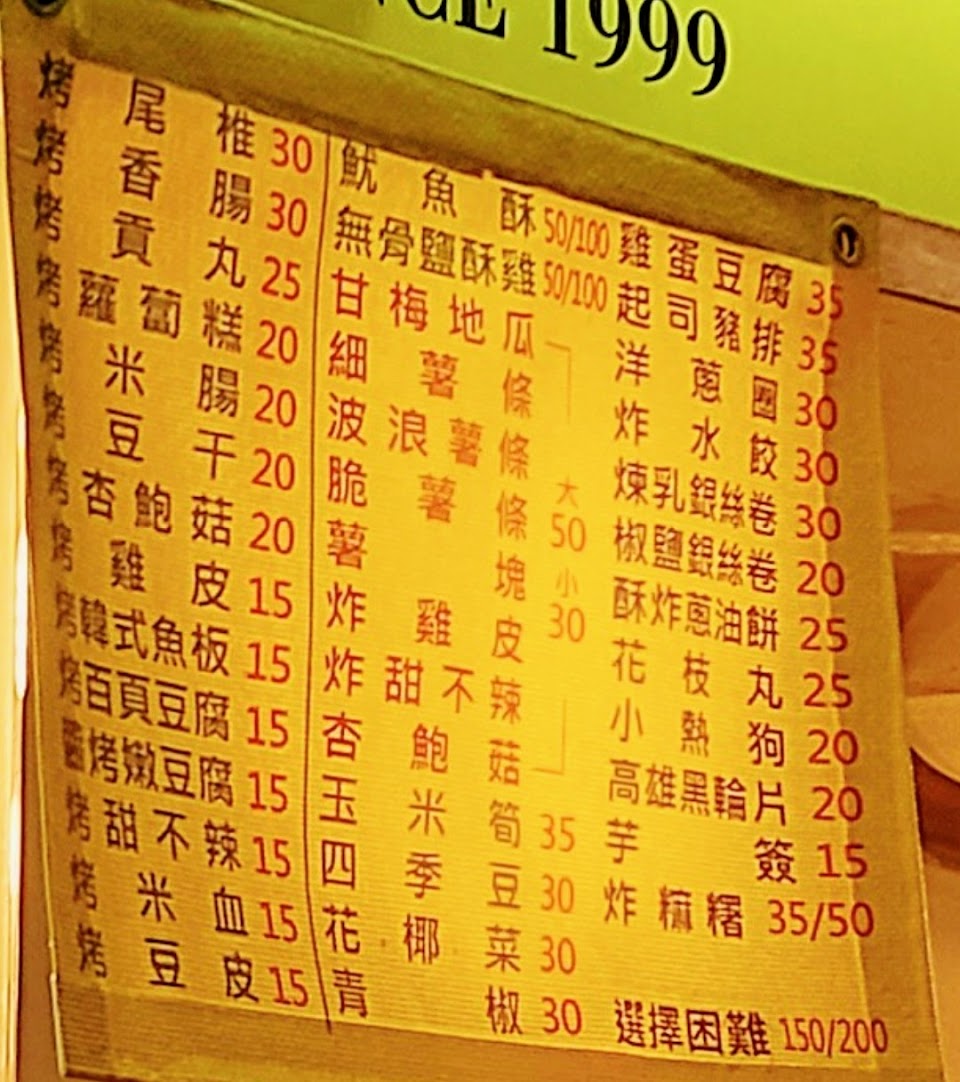 NCE 1999
烤尾椎 30
烤香腸 30
烤貢丸 25
烤蘿蔔糕 20
烤米腸 20
烤豆干 20
烤杏鮑菇 20
烤雞皮 15
烤韓式魚板 15
烤百頁豆腐 15
醬烤嫩豆腐 15
烤甜不辣 15
烤米血 15
烤豆皮 15
魷魚酥 50/100
無骨鹽酥雞 50/100
甘梅地瓜
細薯條
波浪薯條
脆薯條
薯塊
炸雞皮
炸甜不辣
杏鮑菇
大
50
小
30
玉米筍 35
四季豆 30
花椰菜 30
青椒 30
雞蛋豆腐 35
起司豬排 35
洋蔥圈 30
炸水餃 30
煉乳銀絲卷 30
椒鹽銀絲卷 20
酥炸蔥油餅 25
花枝丸 25
小熱狗 20
高雄黑輪片 20
芋簽 15
炸糍糬 35/50
選擇困難 150/200